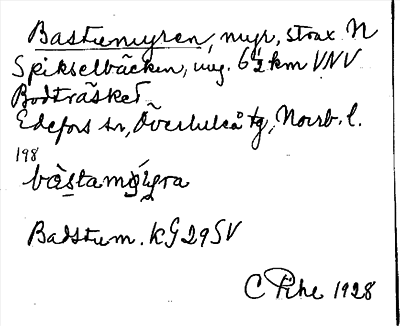 Bastumyren, myr, strax N
Spikselbäcken, ung. 6½ km VNV
Bodträsket.
Edefors sn, Överluleå tg, Norrb. l.
198
Badstum. kG 29 SV
C Pihl 1928